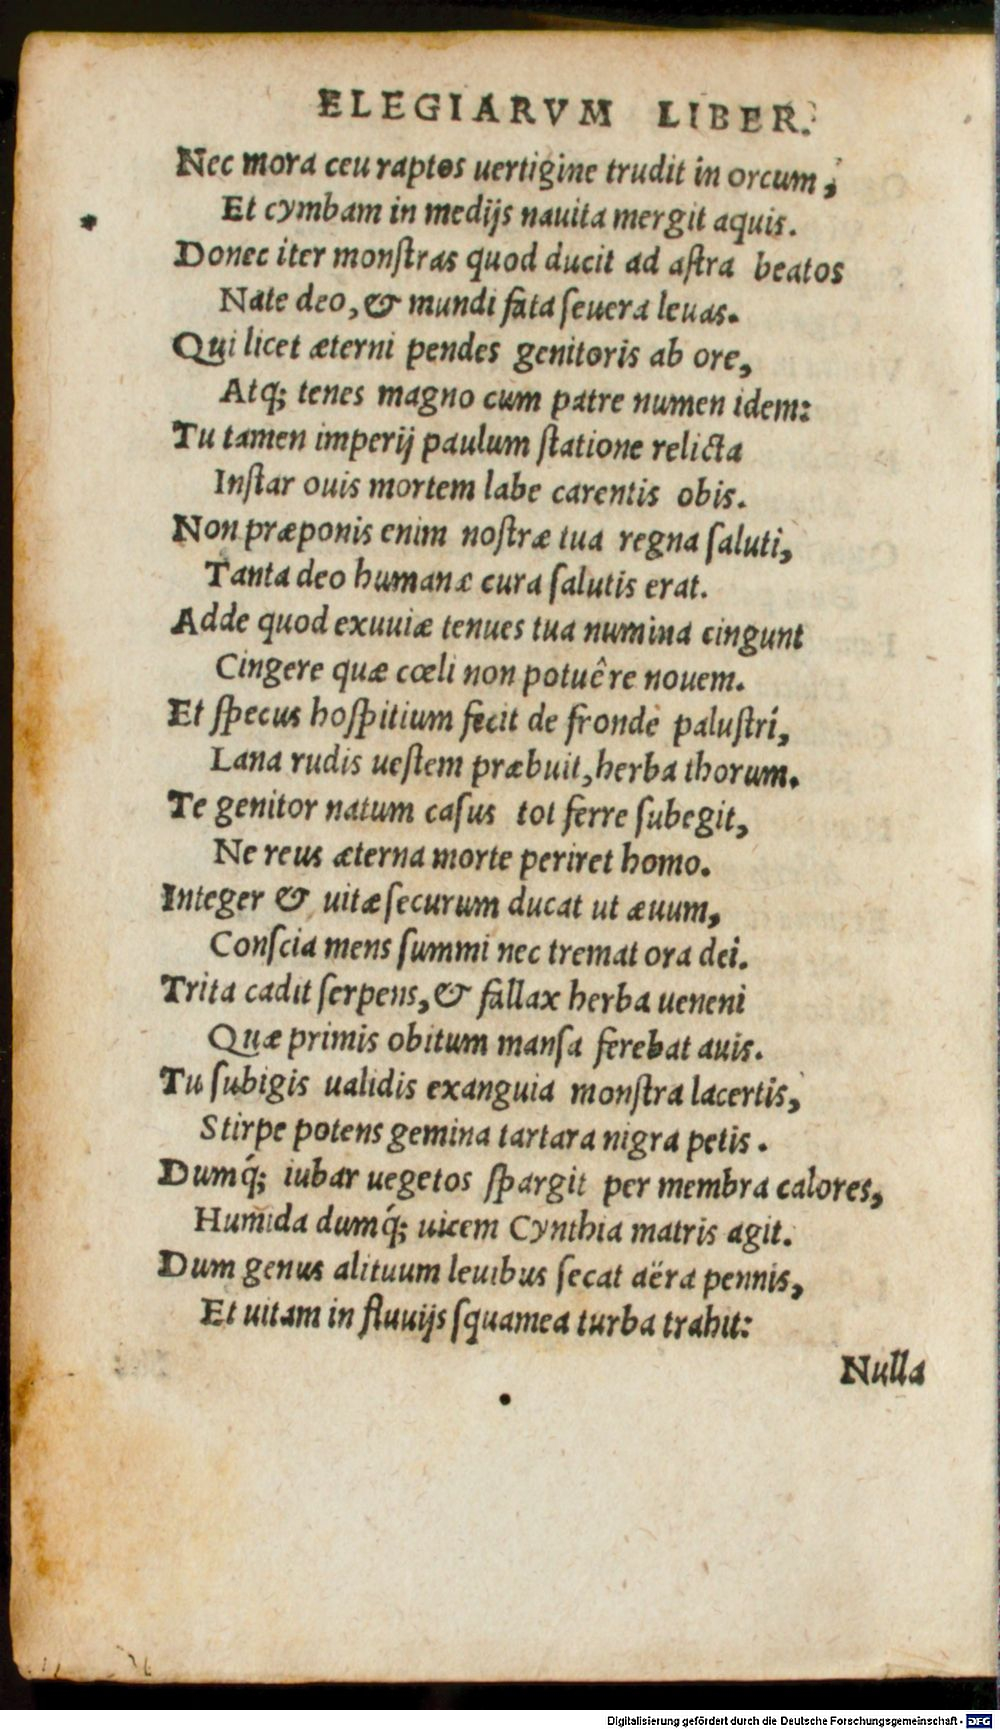 ELEGIARVM LIBER.
Nec mora ceu raptos uertigine trudit in orcum,
Et cymbam in medijs nauita mergit aquis.
Donec iter monſtras quod ducit ad aſtra beatos
Nate deo, & mundi fata ſeuera leuas.
Qui licet æterni pendes genitoris ab ore,
Atq; tenes magno cum patre numen idem:
Tu tamen imperij paulum ſtatione relicta
Inſtar ouis mortem labe carentis obis.
Non præponis enim noſtræ tua regna ſaluti,
Tanta deo humanæ cura ſalutis erat.
Adde quod exuuiæ tenues tua numina cingunt
Cingere quæ cœli non potuêre nouem.
Et ſpecus hoſpitium fecit de fronde paluſtri,
Lana rudis ueſtem præbuit, herba thorum.
Te genitor natum caſus tot ferre ſubegit,
Ne reus æterna morte periret homo.
Integer & uitæ ſecurum ducat ut æuum,
Conſcia mens ſummi nec tremat ora dei.
Trita cadit ſerpens, & fallax herba ueneni
Quæ primis obitum manſa ferebat auis.
Tu ſubigis ualidis exanguia monſtra lacertis,
Stirpe potens gemina tartara nigra petis.
Dumq́; iubar uegetos ſpargit per membra calores,
Humida dumq́; uicem Cynthia matris agit.
Dum genus alituum leuibus ſecat aëra pennis,
Et uitam in fluuijs ſquamea turba trahit:
Nulla
Digitalisierung gefördert durch die Deutsche Forschungsgemeinschaft - DFG